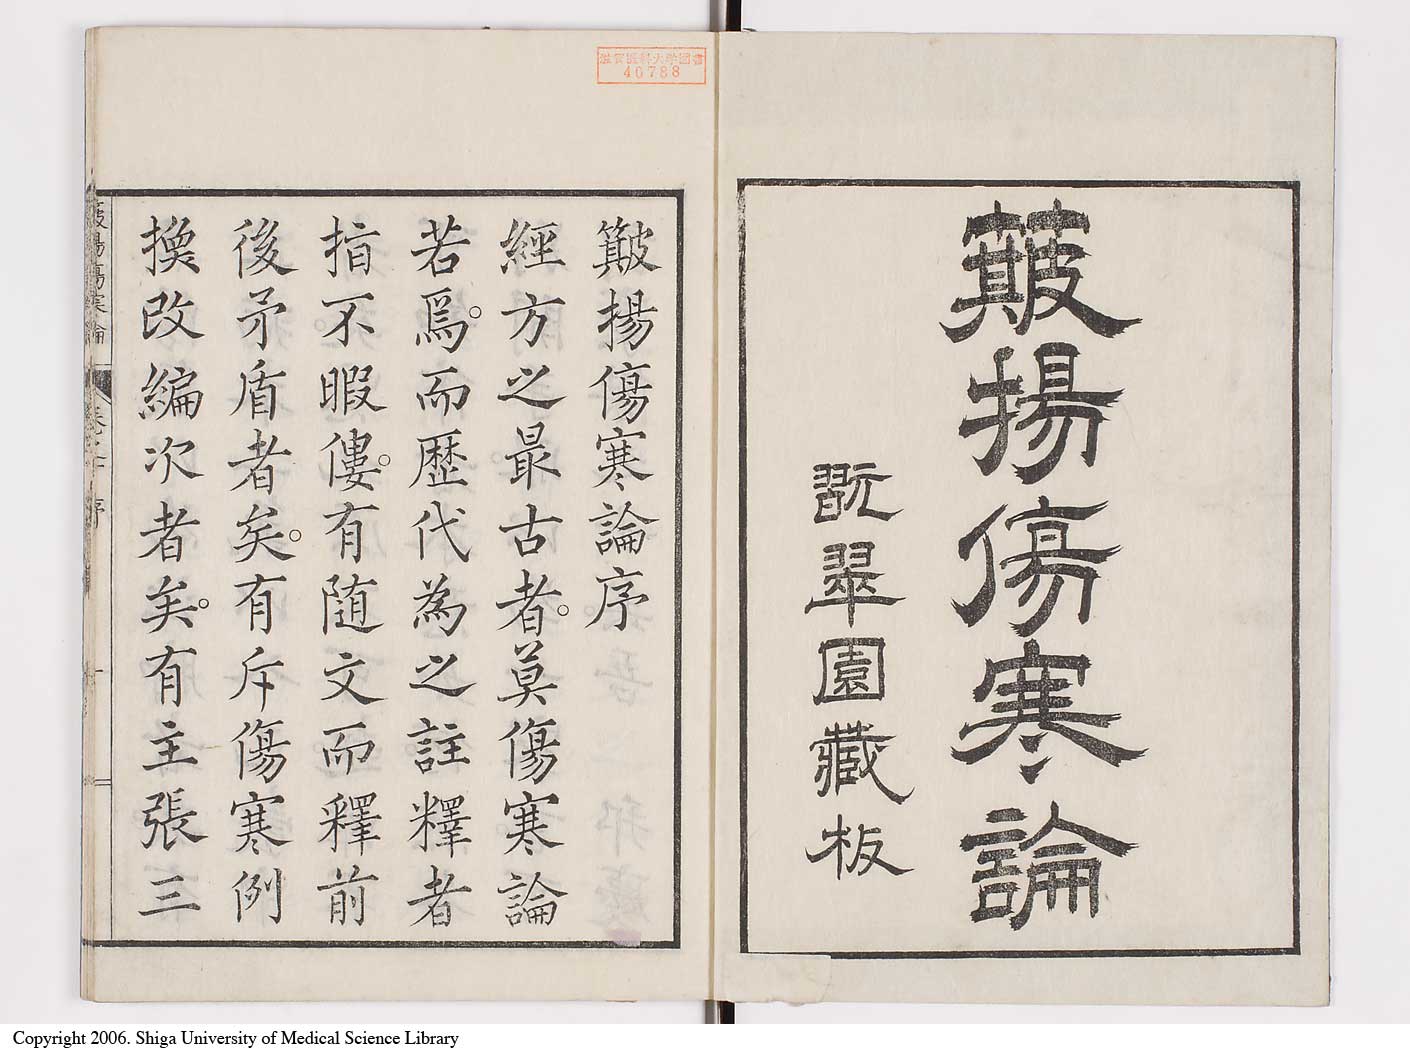 簸揚傷寒論
翫翠園藏板
滋賀医科大学図書
簸揚傷寒論序。
經方之最古者。莫傷寒論
若焉。而歴代為之註釋者
指不暇僂。有随文而釋前
後矛盾者矣。有斥傷寒例
換改編次者矣。有主張三
簸揚傷寒論 序
Copyright 2006. Shiga University of Medical Science Library